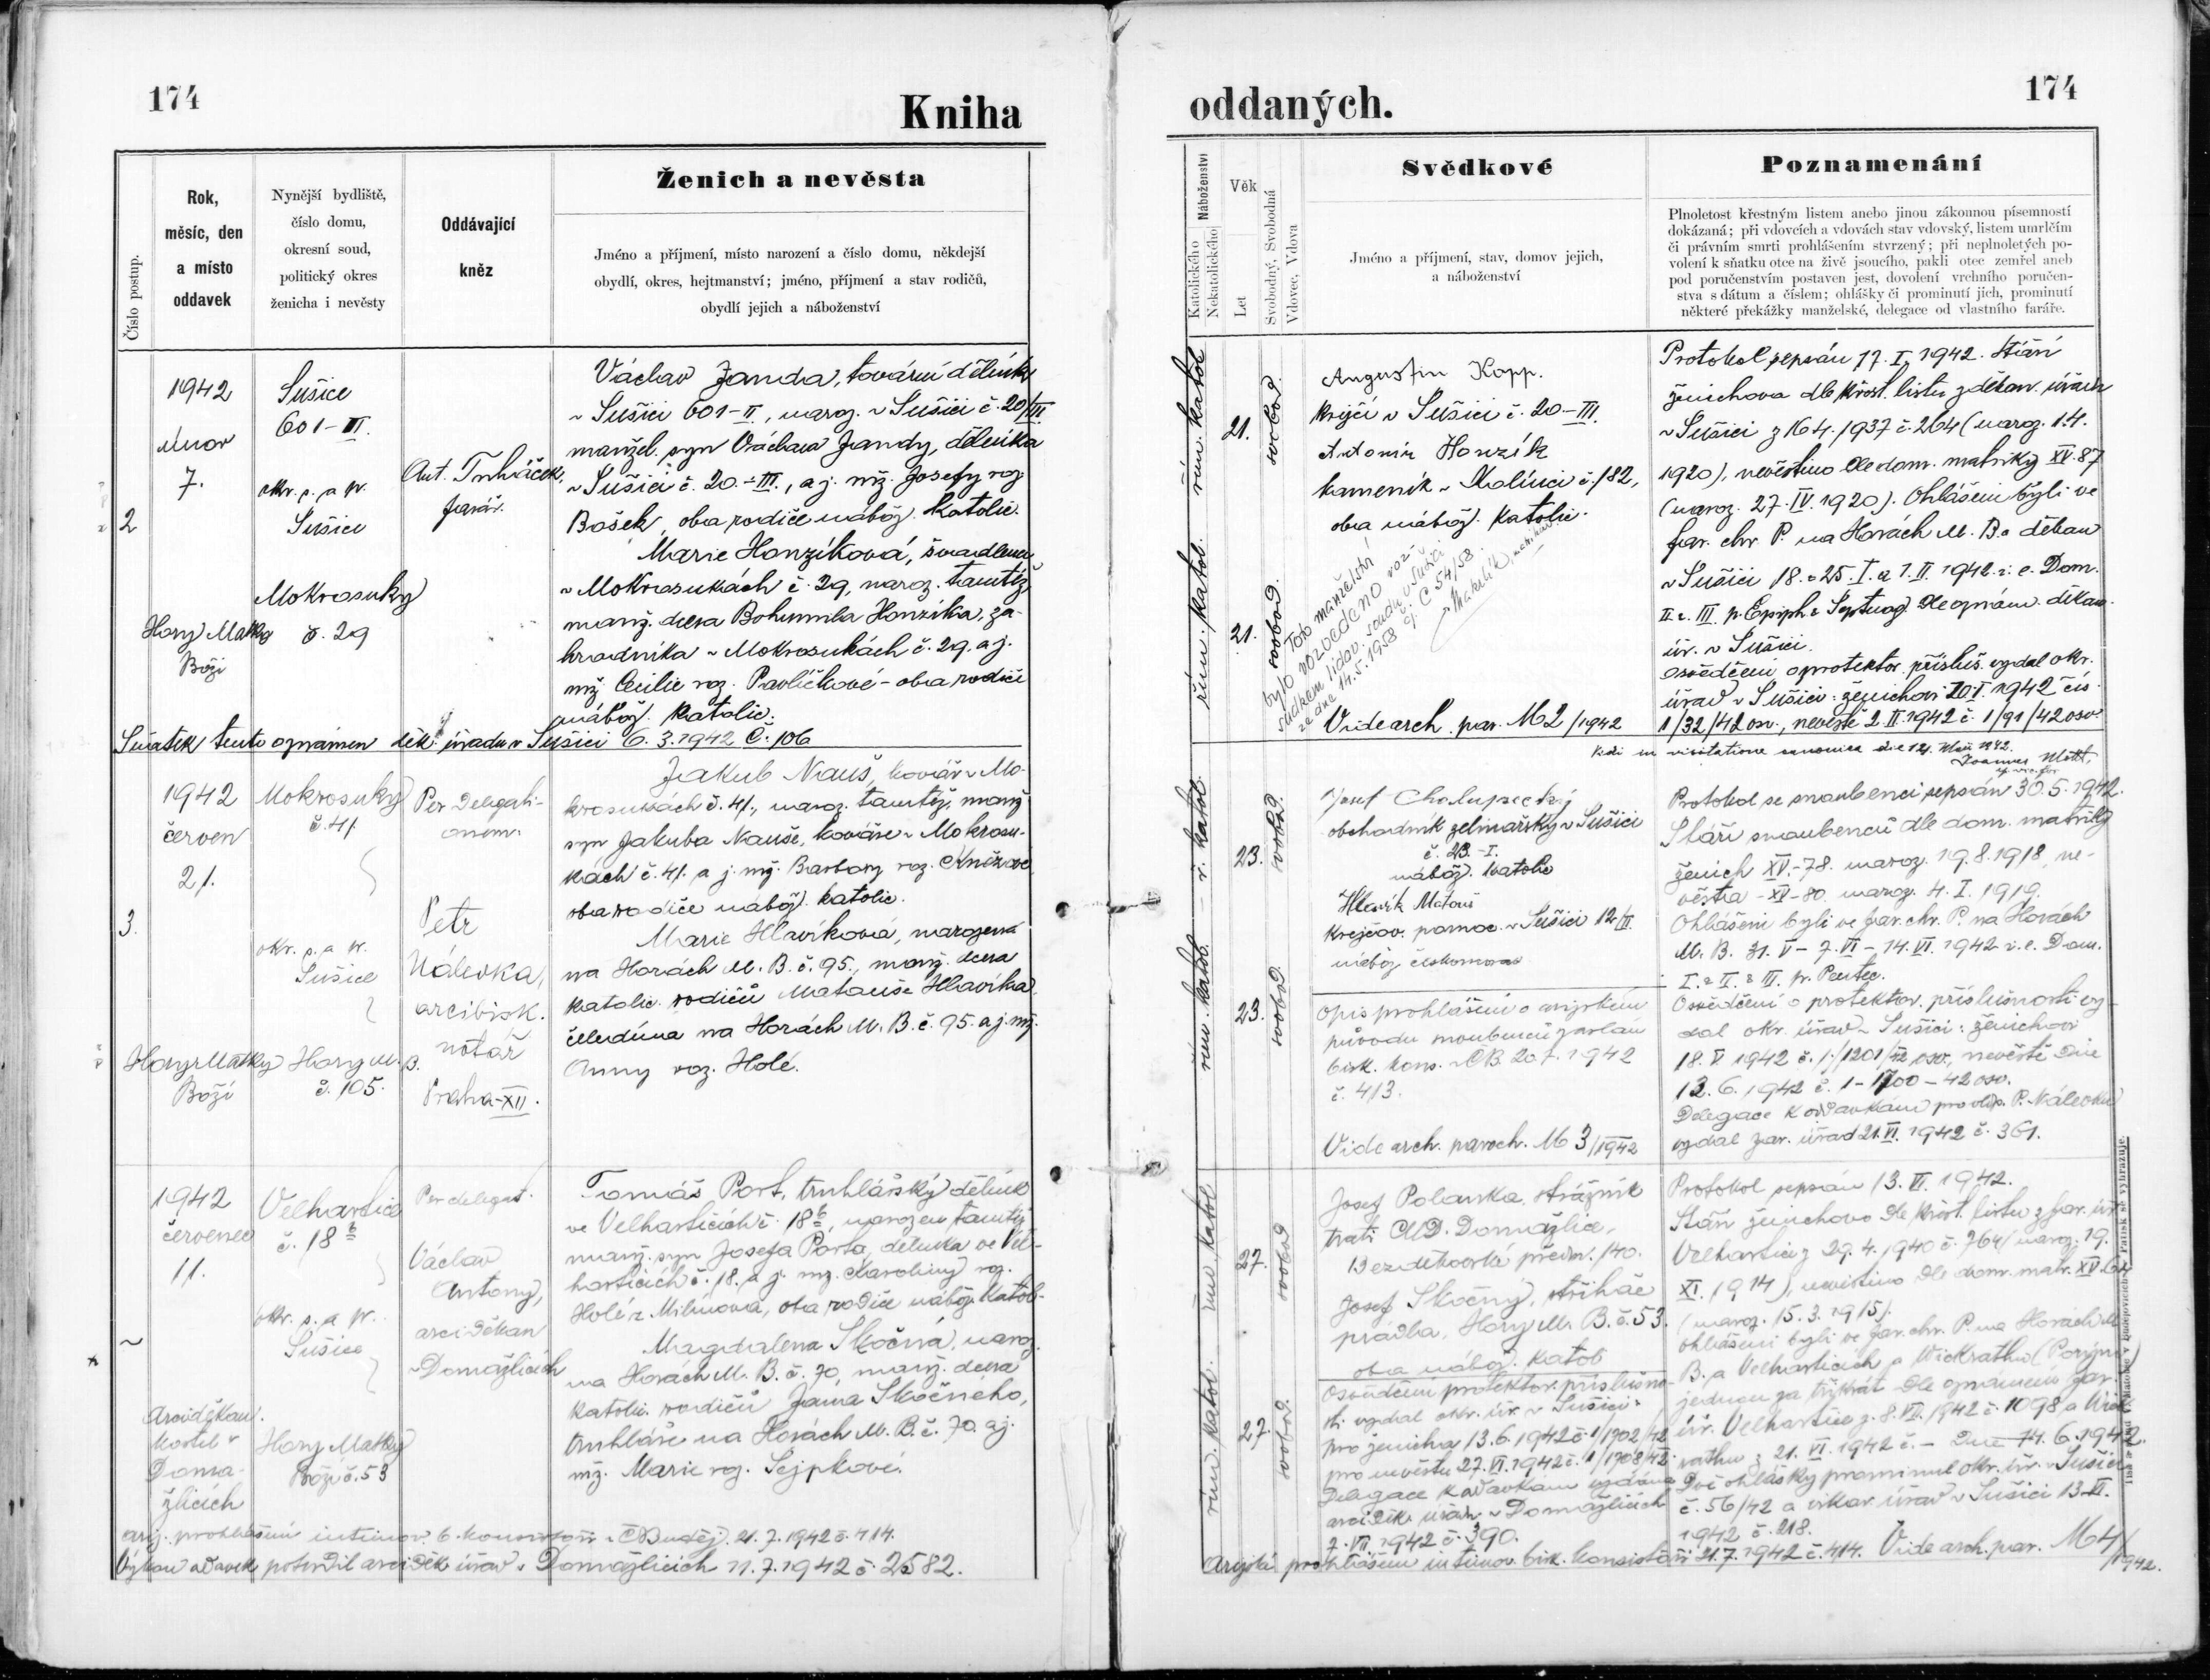 174
Kniha
Číslo postup.
Rok,
měsíc, den
a místo
oddavek
Nynější bydliště,
číslo domu,
okresní soud,
politický okres
ženicha i nevěsty
Oddávající
kněz
Ženich a nevěsta
Jméno a příjmení, místo narození a číslo domu, někdejší
obydlí, okres, hejtmanství; jméno, příjmení a stav rodičů,
obydlí jejich a náboženství
2
1942
únor
7.
Hory Matky
Boží
Sušice
601-III.
okr. s. a p.
Sušice
Mokrosuky
č. 29
Ant. Trhváček,
farář.
Václav Janda, tovární dělník
v Sušici 601-II, naroz. v Sušici č. 20/III
manžel. syn Václava Jandy, dělníka
v Sušici č. 20-III., a j. mž. Josefy roz.
Bošek, oba rodiče nábož. katolic.
Marie Honzíková, švadlena
v Mokrosukách č. 29, naroz. tamtéž,
manž. dcera Bohumila Honzíka, za-
hradníka v Mokrosukách č. 29. a j.
mž. Cecilie roz. Pavlíčkové - oba rodiče
nábož. katolic.
Sňatek tento oznámen děk. úřadu v Sušici 6. 3. 1942 č. 106
3.
1942
červen
21.
Hory Matky
Boží
Mokrosuky
č. 41
okr. s. a p.
Sušice
Hory M. B.
č. 105.
Per Delegati-
onem.
Petr
Nálevka,
arcibisk.
notář
Praha-XII.
Jakub Nauš, kovář v Mo-
krosukách č. 41., naroz. tamtéž, manž.
syn Jakuba Nauše, kováře v Mokrosu-
kách č. 41. a j. mž. Barbory roz. Kněžové
oba rodiče nábož. katolic.
Marie Hlavíková, narozená
na Horách M. B. č. 95., manž. dcera
katolic. rodičů Matouše Hlavíka,
čeledína na Horách M. B. č. 95. a j. mž.
Anny roz. Holé.
1942
červenec
11.
Arciděkan.
kostel v
Doma-
žlicích
Velhartice
č. 18 b
okr. s. a p.
Sušice
Hory Matky
Boží č. 53
Per delegat.
Václav
Antony,
arciděkan
v Domažlicích
Tomáš Port, truhlářský dělník
ve Velharticích č. 18 b, narozen tamtéž
manž. syn Josefa Porta, dělníka ve Vel-
harticích č. 18. a j. mž. Karoliny roz.
Holé z Milínova, oba rodiče nábož. katol-
Magdalena Skočná, naroz.
na Horách M. B. č. 70, manž. dcera
katolic. rodičů Jana Skočného,
truhláře na Horách M. B. č. 70. a j.
mž. Marie roz. Sejpkové.
arij. prohlášení intimov. b. konsistoři v Č. Buděj. 21. 7. 1942 č. 414.
Výkon oddavek potvrdil arciděk. úřad v Domažlicích 11. 7. 1942 č. 2582.
oddaných.
174
Náboženství
Katolického
Nekatolického
Věk
Let
Svobodný, Svobodná
Vdovec, Vdova
Svědkové
Jméno a příjmení, stav, domov jejich,
a náboženství
Poznamenání
Plnoletost křestným listem anebo jinou zákonnou písemností
dokázaná; při vdovcích a vdovách stav vdovský, listem umrlčím
či právním smrti prohlášením stvrzený; při neplnoletých po-
volení k sňatku otce na živě jsoucího, pakli otec zemřel aneb
pod poručenstvím postaven jest, dovolení vrchního poručen-
stva s dátum a číslem; ohlášky či prominutí jich, prominutí
některé překážky manželské, delegace od vlastního faráře.
řím. katol.
řím. katol.
21.
21.
svobod.
svobod.
Augustin Kopp.
krejčí v Sušici č. 20-III.
Antonín Honzík
kameník v Kolínci č. 182,
oba nábož. katolic.
Toto manželství
bylo rozvedeno roz-
sudkem lidov. soudu v Sušici
ze dne 14. 5. 1958 čj. C 54/58.
Vide arch. par. M2/1942
Protokol sepsán 17. I. 1942. Stáří
ženichova dle křest. listu z děkan. úřadu
v Sušici z 16 4. 1937 č. 264 (naroz. 1. 4.
1920), nevěstino dle dom. matriky XV. 87
(naroz. 27. IV. 1920). Ohlášeni byli ve
far. chr. P. na Horách M. B. a děkan.
v Sušici 18. a 25. I. a 1. II. 1942 i. e. Dom.
II. a III. p. Epiph. a Septuag. dle oznám. děkan.
úř. v Sušici.
Osvědčení o protektor. přísluš. vydal okr.
úřad v Sušici: ženichovi 20. I. 1942 čís.
1/32/42 osv., nevěstě 2. II. 1942 č. 1/91/42 osv.
Vidi in visitatione canonica die 12. Maii 1942.
ř. katol.
řím. katol.
23.
23.
svobod.
svobod.
Josef Chalupecký
obchodník zelinářský v Sušici
č. 23.-I.
nábož. katolic
Hlavík Matouš
krejčov. pomoc. v Sušici 12/III.
nábož. českomorav
Opis prohlášení o arijském
původu snoubenců zaslán
bisk. kons. v ČB. 20. 7. 1942
č. 413.
Vide arch. paroch. M 3/1942
Protokol se snoubenci sepsán 30. 5. 1942.
Stáří snoubenců dle dom. matriky
ženich XV.-78. naroz. 19. 8. 1918, ne-
věsta - XV-80. naroz. 4. I. 1919.
Ohlášeni byli ve far. chr. P. na Horách
M. B. 31. V - 7. VI - 14. VI. 1942 i. e. Dom.
I. a II. a III. p. Pentec.
Osvědčení o protektor. příslušnosti vy-
dal okr. úřad v Sušici: ženichovi
18. V 1942 č. 1/1201/42 osv., nevěstě dne
12. 6. 1942 č. 1-1700-42 osv.
Delegace k oddavkám pro vldp. P. Nálevku
vydal far. úřad 21. VI. 1942 č. 361.
řím katol
řím. katol.
27.
27.
svobod
svobod.
Josef Polanka, strážník
trati ČMD. Domažlice,
Bezděkovské předm. 140.
Josef Skočný, střihač
prádla, Hory M. B. č. 53.
oba nábož. katol
Osvědčení protektor. příslušno-
sti vydal okr. úř. v Sušici:
pro ženicha 13. 6. 1942 č. 1/1902/42
pro nevěstu 27. VI. 1942 č. 1/1908/42.
Delegace k oddavkám vydána
arciděk. úřadu v Domažlicích
7. VII. 1942 č. 390.
Protokol sepsán 13. VI. 1942.
Stáří ženichovo dle křest. listu z far. úř
Velhartice z 29. 4. 1940 č. 764 (naroz. 19.
XI. 1914), nevěstino dle dom. matr. XV. 64
(naroz. 15. 3. 1915).
Ohlášeni byli ve far. chr. P. na Horách M.
B. a Velharticích a Wickrathu (Porýní)
jednou za třikrát dle oznámení far.
úř. Velhartice z. 8. VII. 1942 č. 1098 a Wick-
rathu z 21. VI. 1942 č. - Dne 14. 6. 1942.
Dvě ohlášky prominul okr. úř. v Sušici
č. 56/42 a vikar. úřad v Sušici 13. VI.
1942 č. 218.
Arijské prohlášení intimov. bisk. konsistoři 21. 7. 1942 č. 414. Vide arch. par. M4/1942.